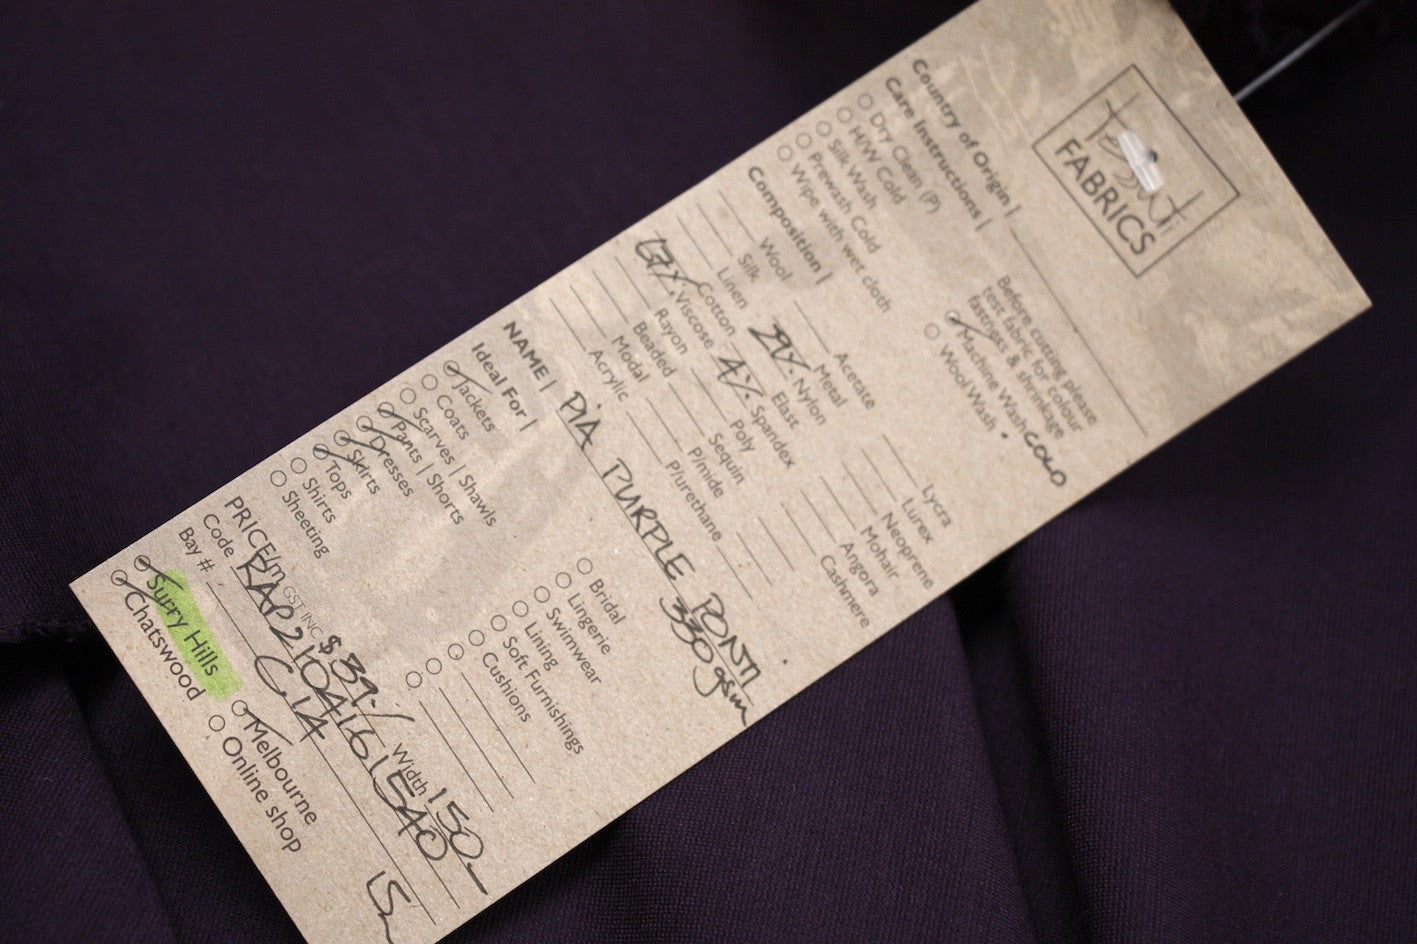 Tessuti
FABRICS
Country of Origin |
Care Instructions |
Dry Clean (P)
H/W Cold
Silk Wash
Prewash Cold
Wipe with wet cloth
Before cutting please
test fabric for colour
fastness & shrinkage
Machine Wash COLD
Wool Wash
Composition |
Wool
Silk
Linen
Cotton
67% Viscose
Rayon
Beaded
Modal
Acrylic
Acetate
Metal
29% Nylon
Elast
4% Spandex
Poly
Sequin
P/mide
P/urethane
Lycra
Lurex
Neoprene
Mohair
Angora
Cashmere
NAME | PIA PURPLE PONTI
330gsm
Ideal For |
Jackets
Coats
Scarves | Shawls
Pants | Shorts
Dresses
Skirts
Tops
Shirts
Sheeting
Bridal
Lingerie
Swimwear
Lining
Soft Furnishings
Cushions
PRICE/m GST INC $39.- Width 150
Code RAP2104161540
Bay # C14
Surry Hills
Chatswood
Melbourne
Online shop